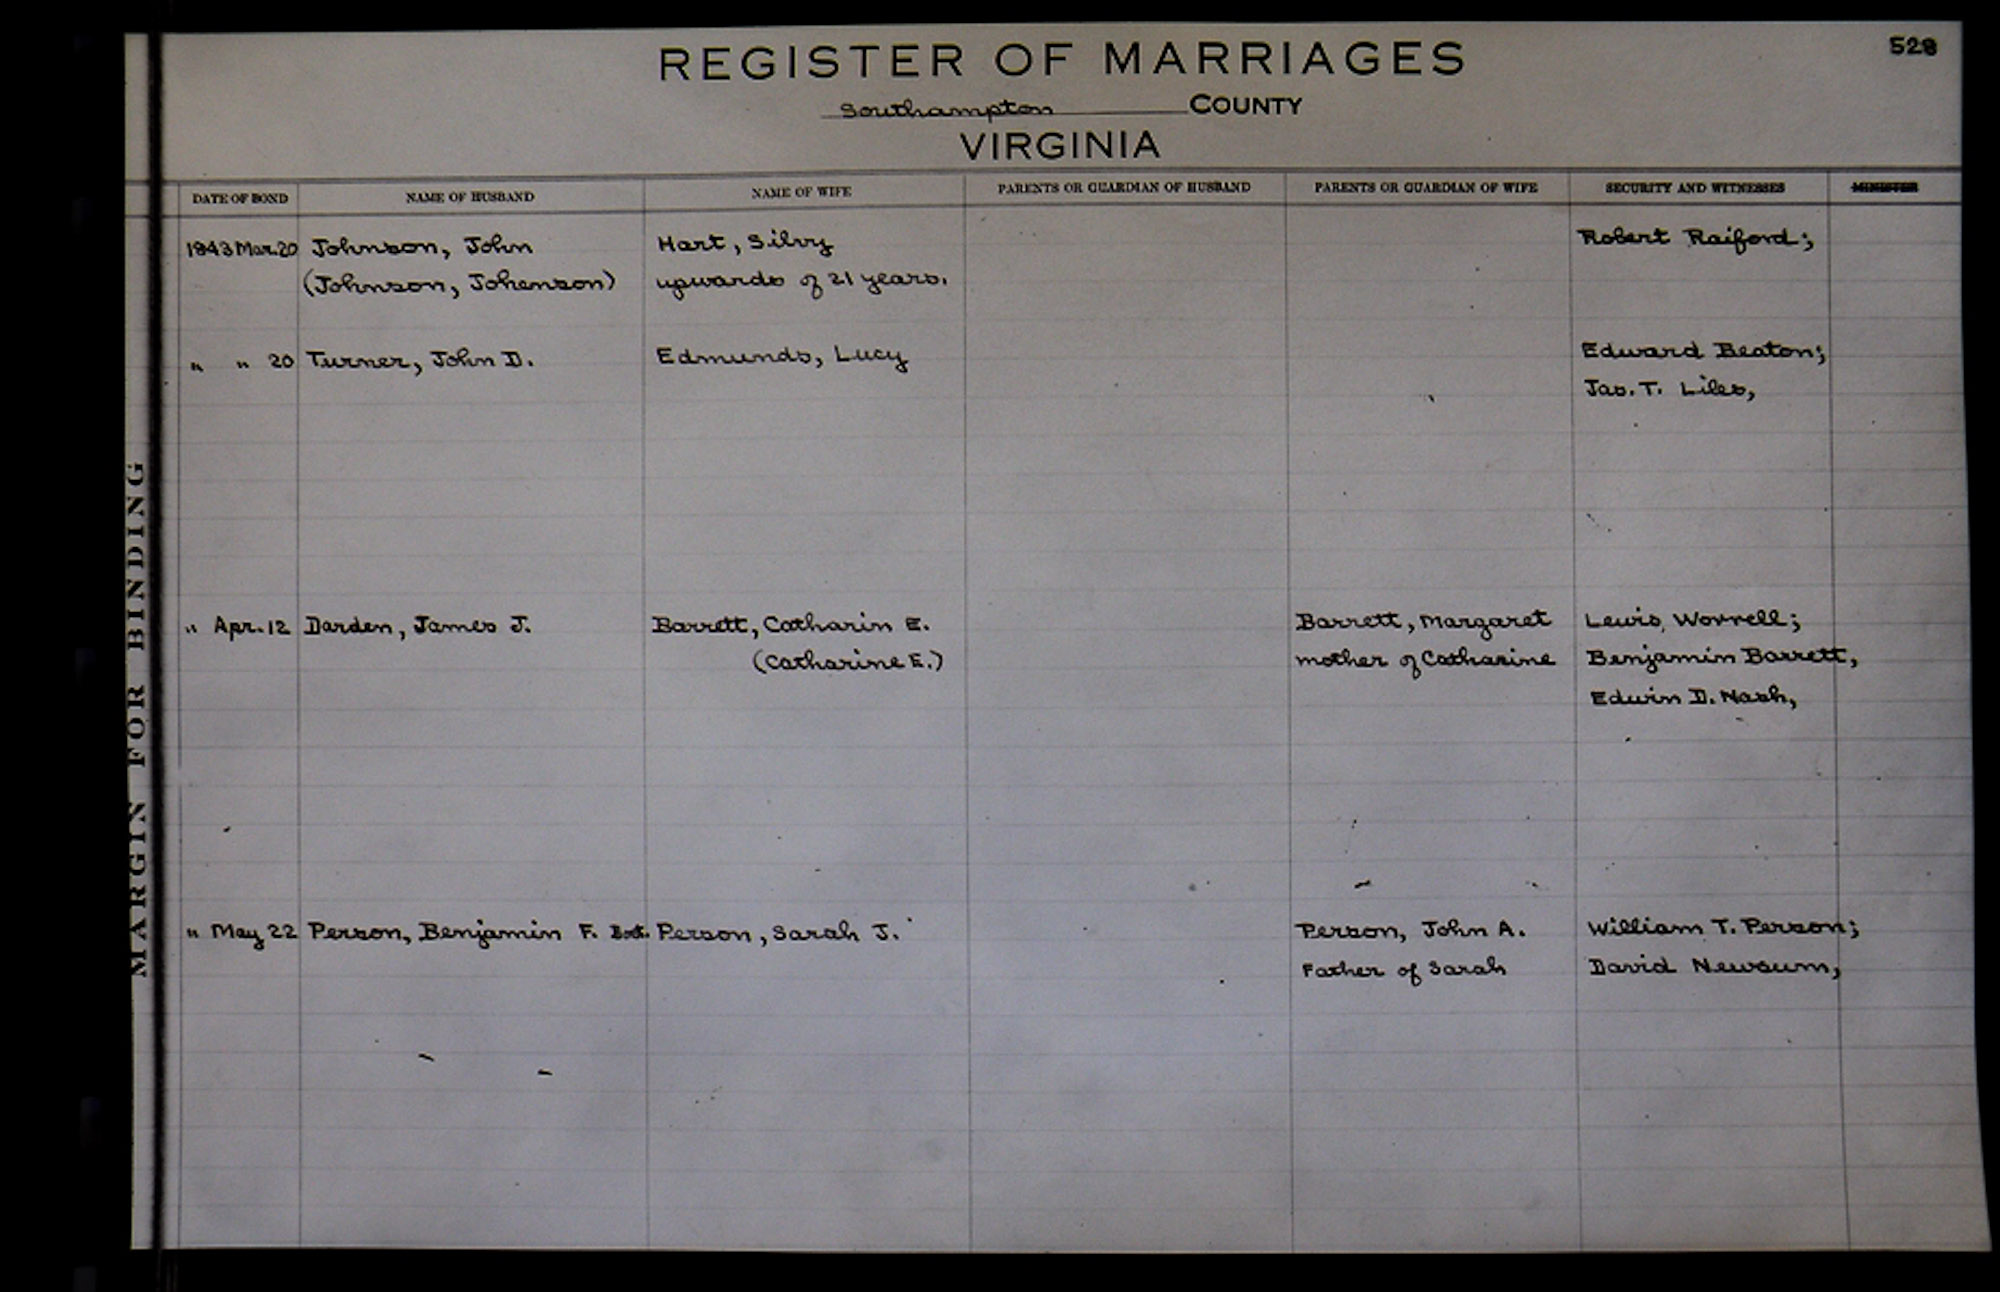 528
REGISTER OF MARRIAGES
Southampton COUNTY
VIRGINIA
DATE OF BOND NAME OF HUSBAND NAME OF WIFE PARENTS OR GUARDIAN OF HUSBAND PARENTS OR GUARDIAN OF WIFE SECURITY AND WITNESSES MINISTER
1843 Mar. 20 Johnson, John Hart, Silvy Robert Raiford;
(Johnson, Johenson) upwards of 21 years.
" " 20 Turner, John D. Edmunds, Lucy Edward Beaton;
Jas. T. Liles,
" Apr. 12 Darden, James J. Barrett, Catharin E. Barrett, Margaret Lewis Worrell;
(Catharine E.) mother of Catharine Benjamin Barrett,
Edwin D. Nash,
" May 22 Person, Benjamin F. Person, Sarah J. Person, John A. William T. Person;
Father of Sarah David Newsum,
MARGIN FOR BINDING